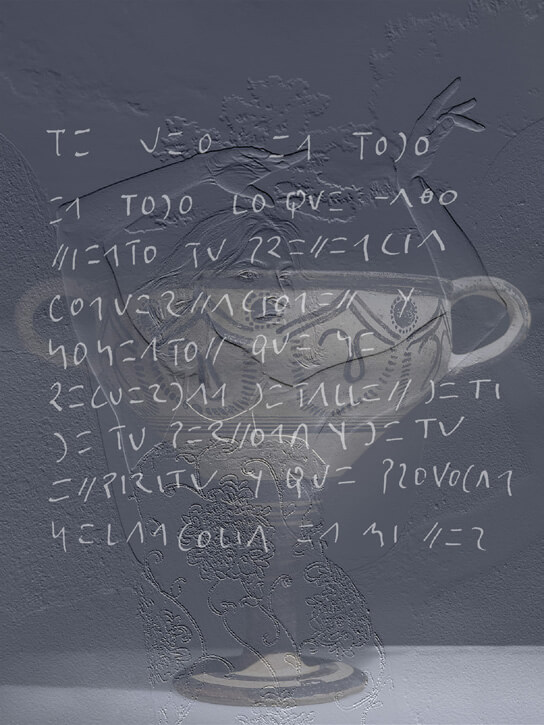 TE VEO EN TODO
EN TODO LO QUE HAGO
SIENTO TU PRESENCIA
CONVERSACIONES Y
MOMENTOS QUE ME
RECUERDAN DETALLES DE TI
DE TU PERSONA Y DE TU
ESPIRITU Y QUE PROVOCAN
MELANCOLIA EN MI SER